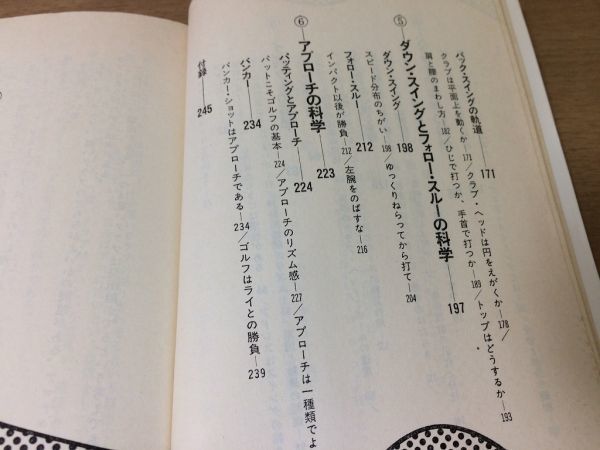 バック・スイングの軌道――171
クラブは平面上を動くか―171／クラブ・ヘッドは円をえがくか―178／
肩と腰のまわし方―182／ひじで打つか、手首で打つか―189／トップはどうするか―193
⑤―ダウン・スイングとフォロー・スルーの科学――197
ダウン・スイング――198
スピード分布のちがい―198／ゆっくりねらってから打て―204
フォロー・スルー――212
インパクト以後が勝負―212／左腕をのばすな―216
⑥―アプローチの科学――223
パッティングとアプローチ――224
パットこそゴルフの基本―224／アプローチのリズム感―227／アプローチは一種類でよ
バンカー――234
バンカー・ショットはアプローチである―234／ゴルフはライとの勝負―239
付録――245